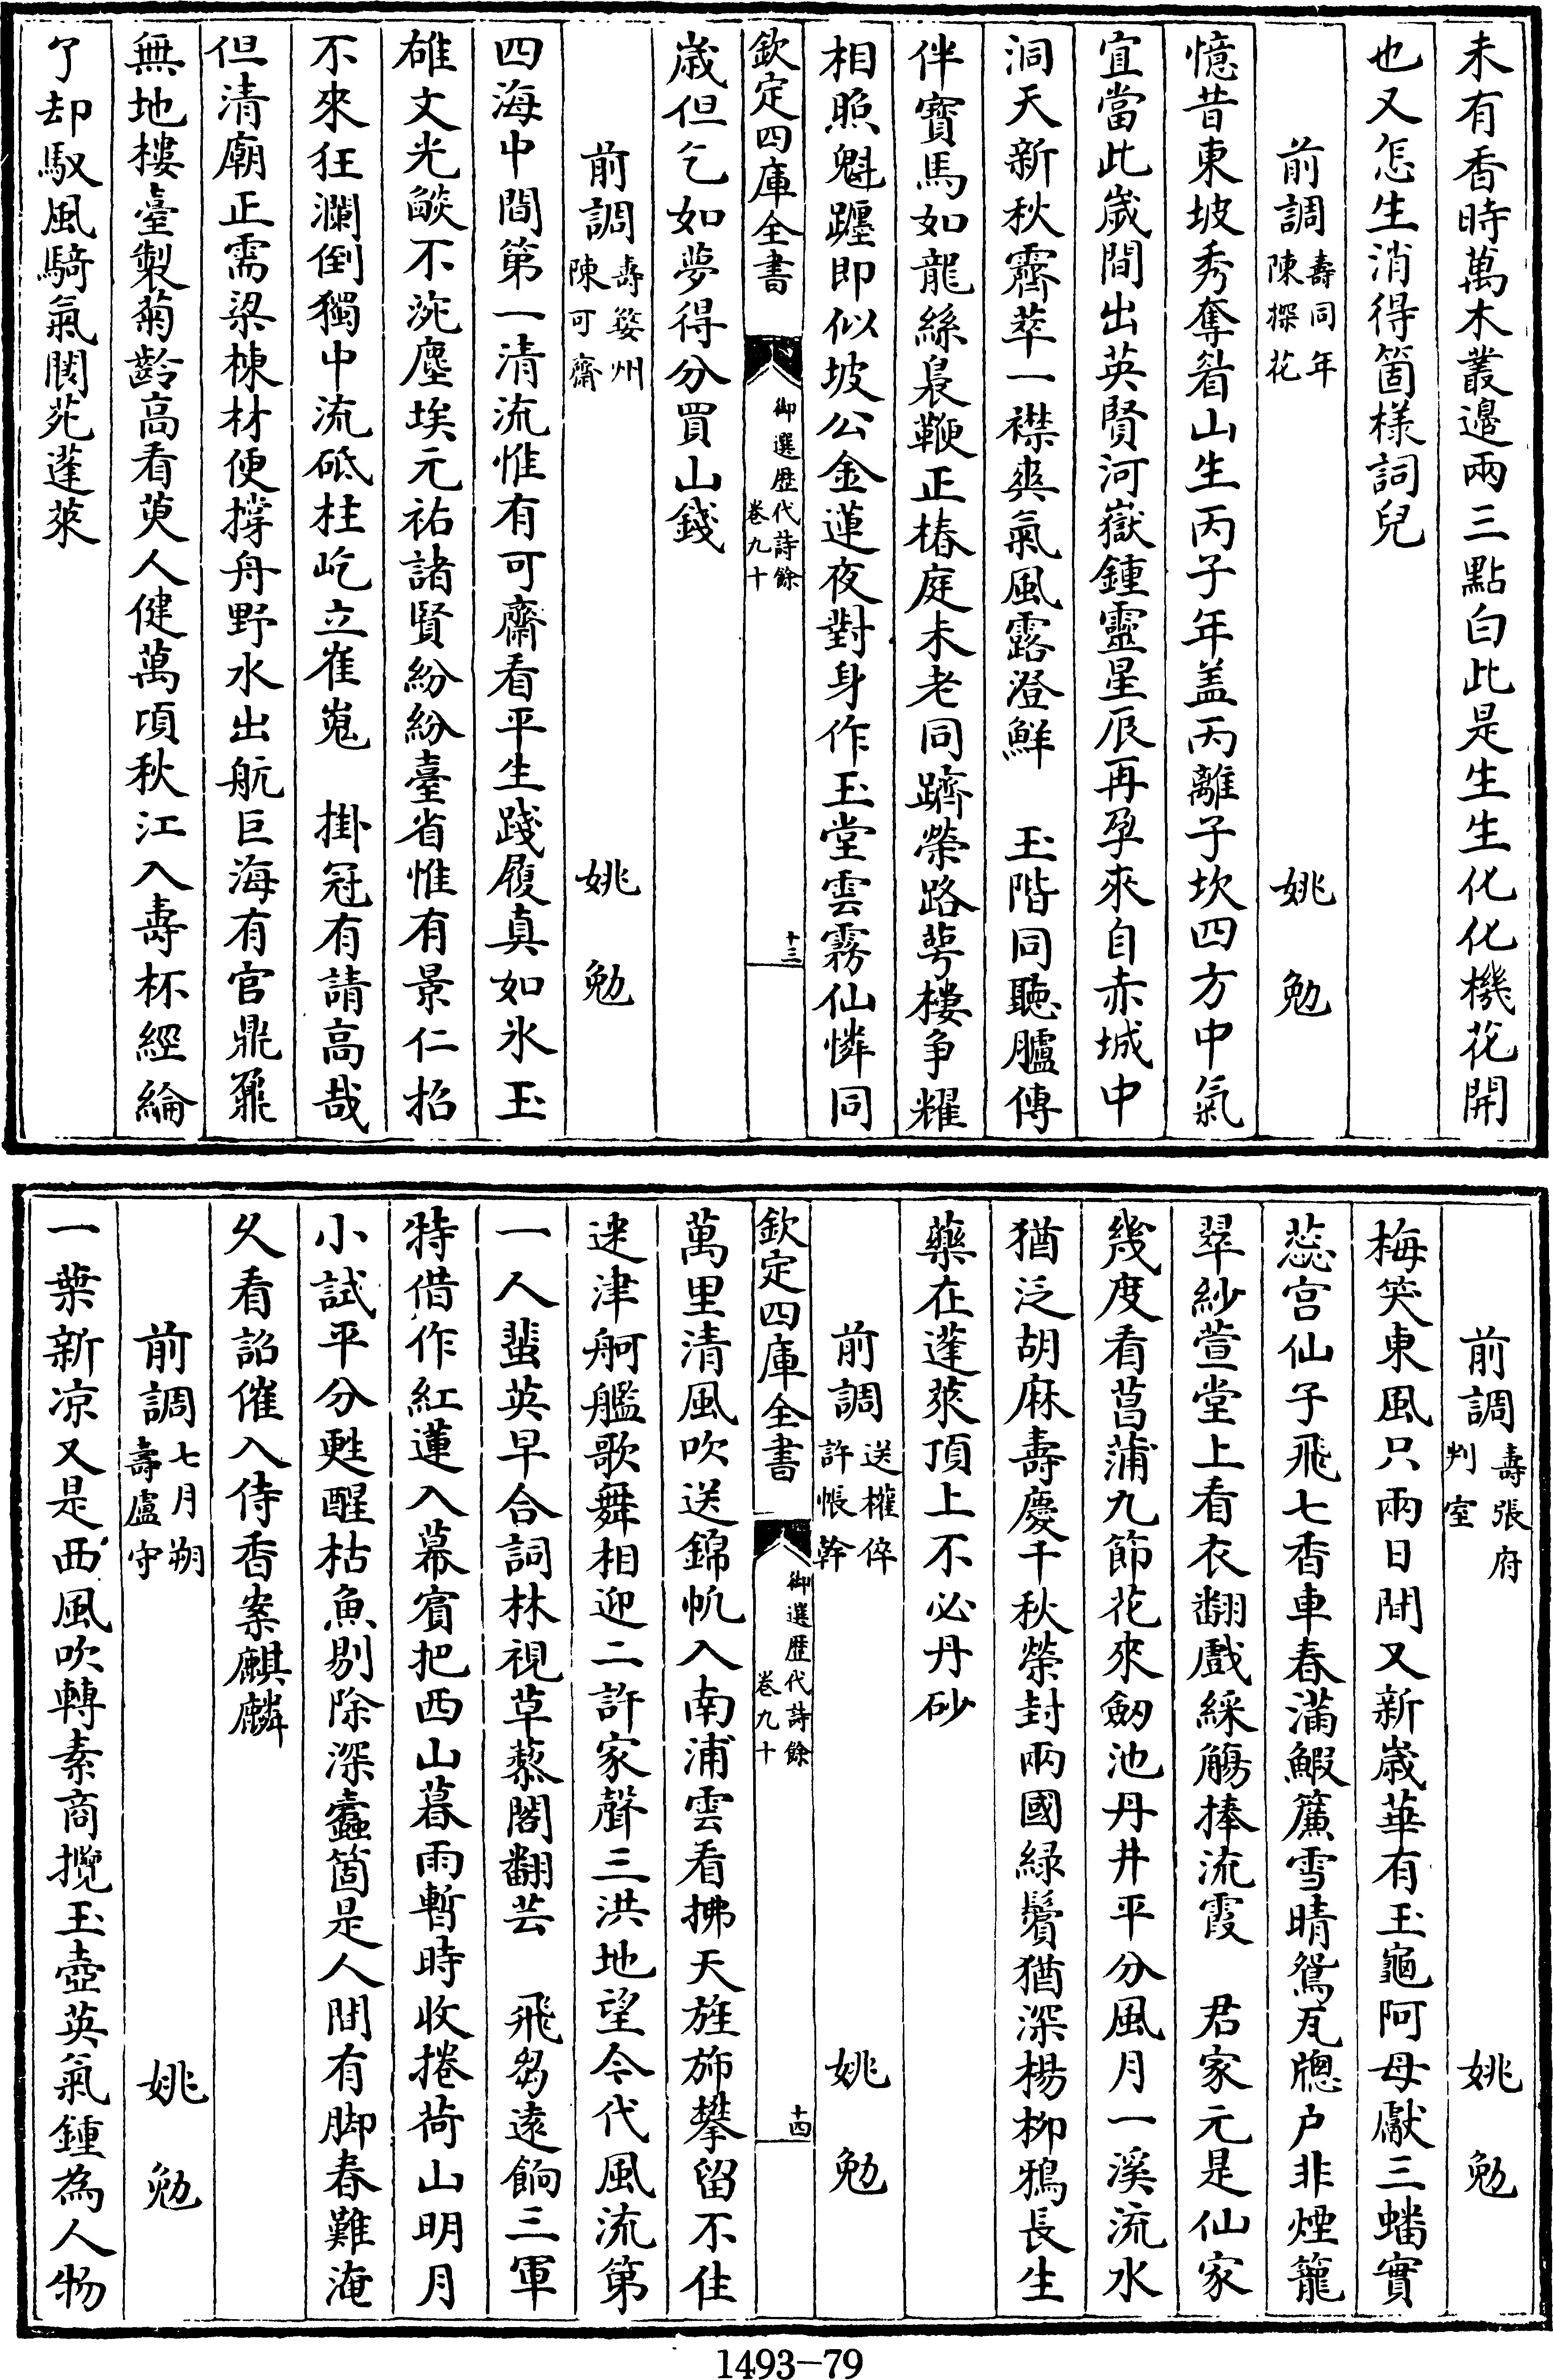 未有香時萬木叢邊兩三點白此是生生化化機花開
也又怎生消得箇樣詞兒
前調壽同年陳探花 姚勉
憶昔東坡秀奪眉山生丙子年盖丙離子坎四方中氣
宜當此歲間出英賢河嶽鍾靈星辰再孕來自赤城中
洞天新秋霽萃一襟爽氣風露澄鮮 玉階同聽臚傳
伴寶馬如龍絲裊鞭正椿庭未老同躋榮路萼樓争耀
相照魁躔即似坡公金蓮夜對身作玉堂雲霧仙憐同
欽定四庫全書 御選歷代詩餘 卷九十 十三
歲但乞如夢得分買山錢
前調壽婺州陳可齋 姚勉
四海中間第一清流惟有可齋看平生踐履真如氷玉
雄文光燄不涴塵埃元祐諸賢紛紛臺省惟有景仁招
不來狂瀾倒獨中流砥柱屹立崔嵬 掛冠有請高哉
但清廟正需梁棟材便撐舟野水出航巨海有官鼎鼐
無地樓臺製菊齡高看萸人健萬頃秋江入壽杯經綸
了却馭風騎氣閬苑蓬萊
前調壽張府判室 姚勉
梅笑東風只兩日間又新歲華有玉龜阿母獻三蟠實
蕊宫仙子飛七香車春滿鰕簾雪晴鴛瓦牕户非煙籠
翠紗萱堂上看衣翻戲綵觴捧流霞 君家元是仙家
幾度看菖蒲九節花來劒池丹井平分風月一溪流水
猶泛胡麻壽慶千秋榮封兩國緑鬢猶深楊柳鴉長生
藥在蓬萊頂上不必丹砂
前調送權倅許帳幹 姚勉
欽定四庫全書 御選歷代詩餘 卷九十 十四
萬里清風吹送錦帆入南浦雲看拂天旌斾攀留不住
迷津舸艦歌舞相迎二許家聲三洪地望今代風流第
一人蜚英早合詞林視草藜閣翻芸 飛芻遠餉三軍
特借作紅蓮入幕賓把西山暮雨暫時收捲荷山明月
小試平分甦醒枯魚剔除深蠧箇是人間有脚春難淹
久看詔催入侍香案麒麟
前調七月朔壽盧守 姚勉
一葉新凉又是西風吹轉素商攬玉壺英氣鍾為人物
1493-79